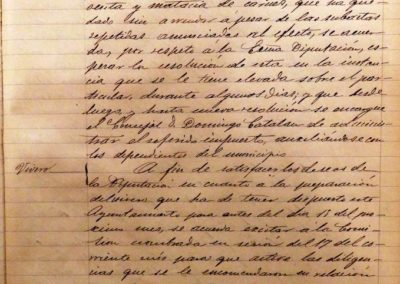 venta y matanza de carnes, que ha que-
dado sin arrendar a pesar de las subastas
repetidas anunciadas al efecto, se acuer-
da, por respeto a la Excma Diputación, es-
perar la resolución de esta en la instan-
cia que se le tiene elevada sobre el par-
ticular, durante algunos dias; y que desde
luego, y hasta nueva resolución se encargue
el Concejal D. Domingo Catalan de adminis-
trar el referido impuesto, auxiliandose con
los dependientes del municipio
Vivero
A fin de satisfacer los deseos de
la Diputación en cuanto á la preparación
del vivero que ha de tener dispuesto este
Ayuntamiento para antes del dia 15 del pro-
ximo mes, se acuerda excitar a la Comi-
sion nombrada en sesión del 17 del co-
rriente mes para que active las diligen-
cias que se le encomendaron en relación